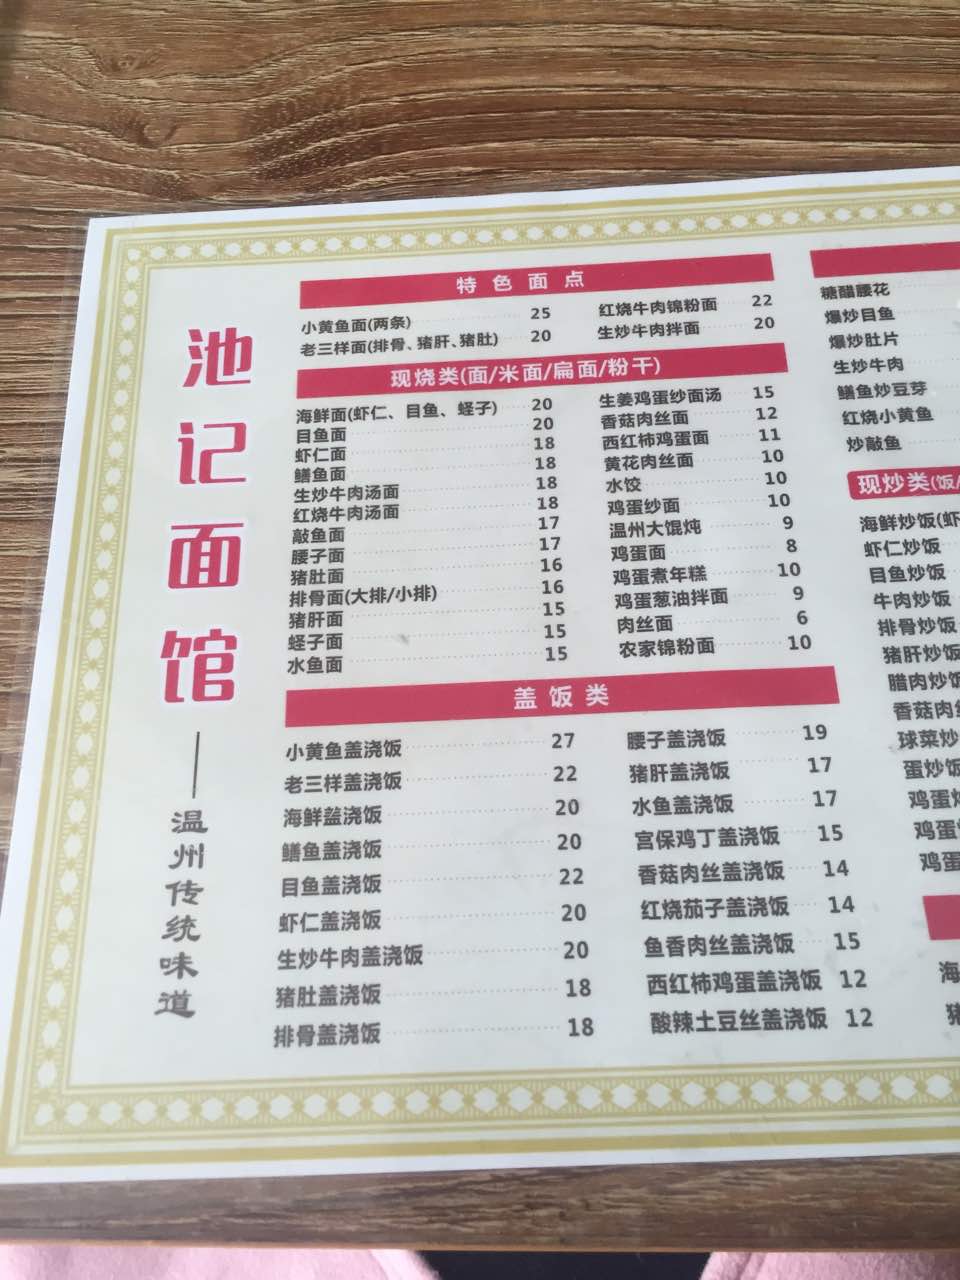 池记面馆
温州传统味道
特色面点
小黄鱼面(两条) 25
老三样面(排骨、猪肝、猪肚) 20
红烧牛肉锦粉面 22
生炒牛肉拌面 20
现烧类(面/米面/扁面/粉干)
海鲜面(虾仁、目鱼、蛏子) 20
目鱼面 20
虾仁面 18
鳝鱼面 18
生炒牛肉汤面 18
红烧牛肉汤面 18
敲鱼面 17
腰子面 17
猪肚面 16
排骨面(大排/小排) 16
猪肝面 15
蛏子面 15
水鱼面 15
生姜鸡蛋纱面汤 15
香菇肉丝面 12
西红柿鸡蛋面 11
黄花肉丝面 10
水饺 10
鸡蛋纱面 10
温州大馄炖 9
鸡蛋面 8
鸡蛋煮年糕 10
鸡蛋葱油拌面 9
肉丝面 6
农家锦粉面 10
盖饭类
小黄鱼盖浇饭 27
老三样盖浇饭 22
海鲜盖浇饭 20
鳝鱼盖浇饭 20
目鱼盖浇饭 22
虾仁盖浇饭 20
生炒牛肉盖浇饭 20
猪肚盖浇饭 18
排骨盖浇饭 18
腰子盖浇饭 19
猪肝盖浇饭 17
水鱼盖浇饭 17
宫保鸡丁盖浇饭 15
香菇肉丝盖浇饭 14
红烧茄子盖浇饭 14
鱼香肉丝盖浇饭 15
西红柿鸡蛋盖浇饭 12
酸辣土豆丝盖浇饭 12
糖醋腰花
爆炒目鱼
爆炒肚片
生炒牛肉
鳝鱼炒豆芽
红烧小黄鱼
炒敲鱼
现炒类(饭/
海鲜炒饭(虾
虾仁炒饭
目鱼炒饭
牛肉炒饭
排骨炒饭
猪肝炒饭
腊肉炒饭
香菇肉丝
球菜炒
蛋炒饭
鸡蛋炒
鸡蛋
鸡蛋
海
猪